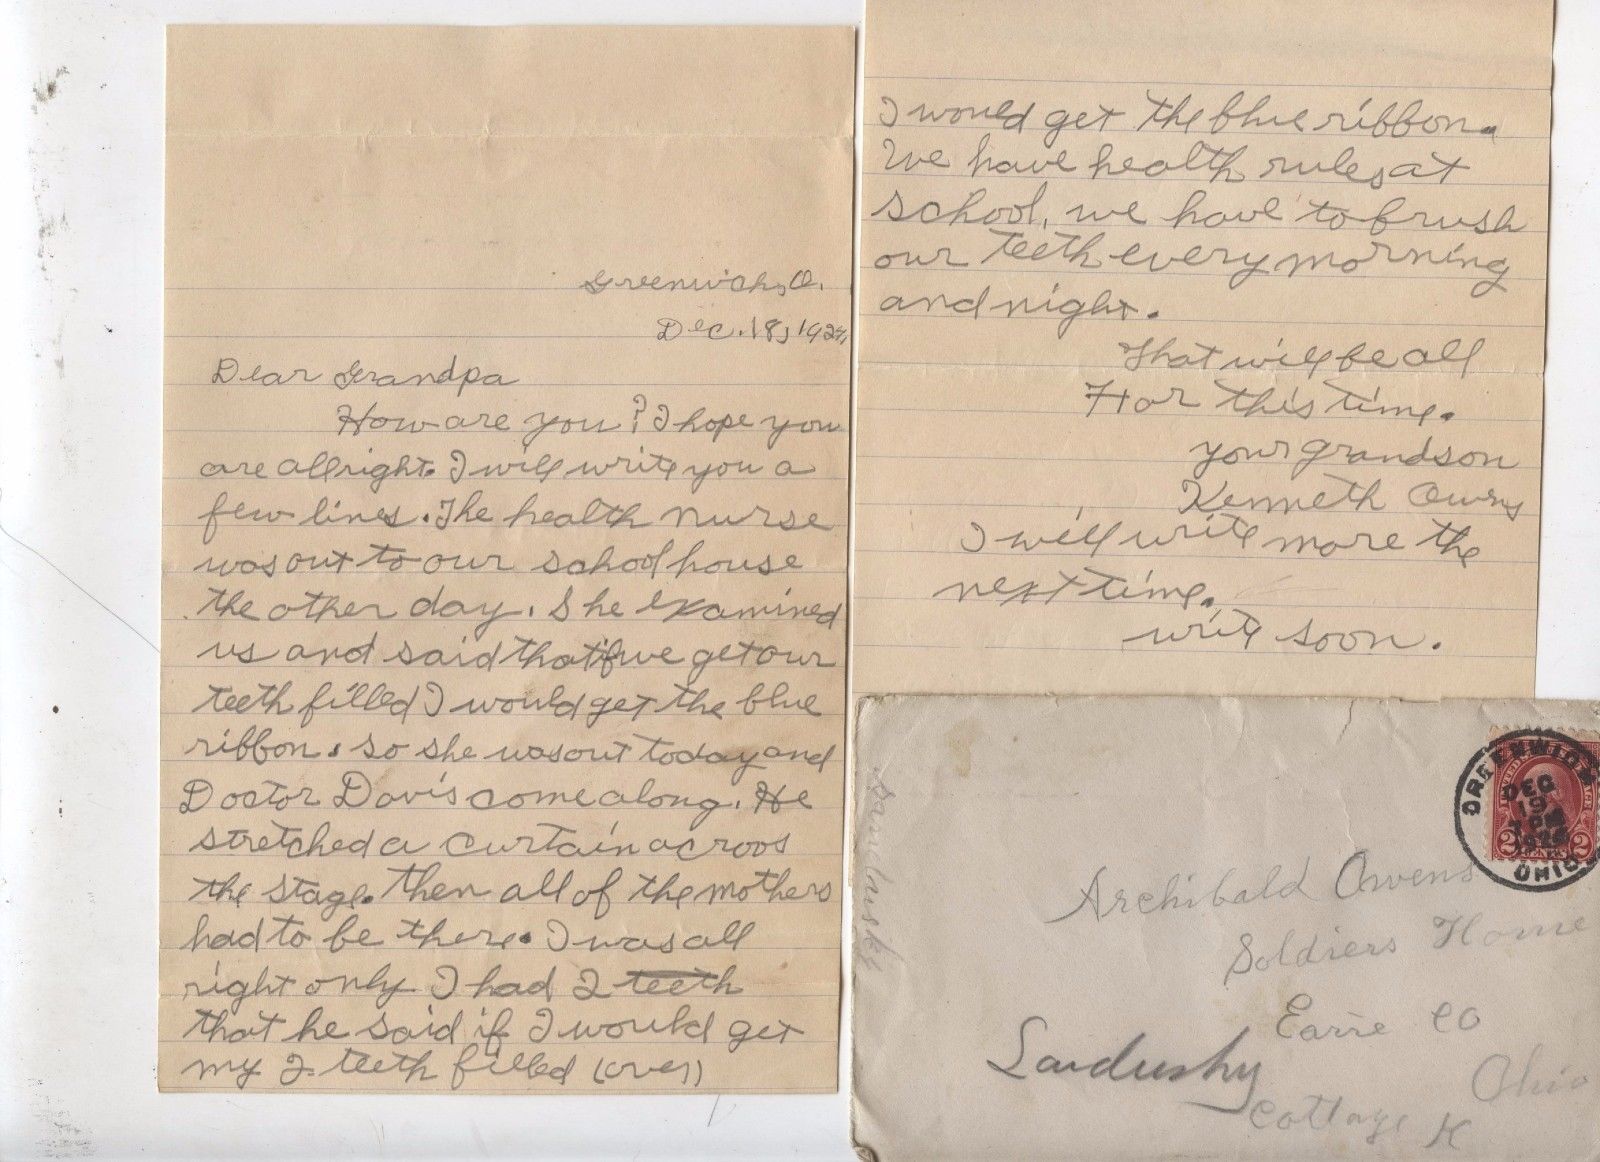 Greenwich, O.
Dec. 18, 1924,
Dear Grandpa
How are you? I hope you
are allright. I will write you a
few lines. The health nurse
was out to our school house
the other day. She examined
us and said that if we get our
teeth filled I would get the blue
ribbon. so she was out today and
Doctor Davis come along. He
stretched a curtain acroos
the stage. then all of the mothers
had to be there. I was all
right only I had 2 teeth
that he said if I would get
my 2 teeth filled (over)
I would get the blue ribbon.
We have health rules at
school. we have to brush
our teeth every morning
and night.
That will be all
For this time.
your grandson
Kenneth Owens
I will write more the
next time.
write soon.
GREENWICH
DEC
19
7 PM
OHIO
2 CENTS 2
Archibald Owens
Soldiers Home
Earie CO
Sandusky
Ohio
Cottage K